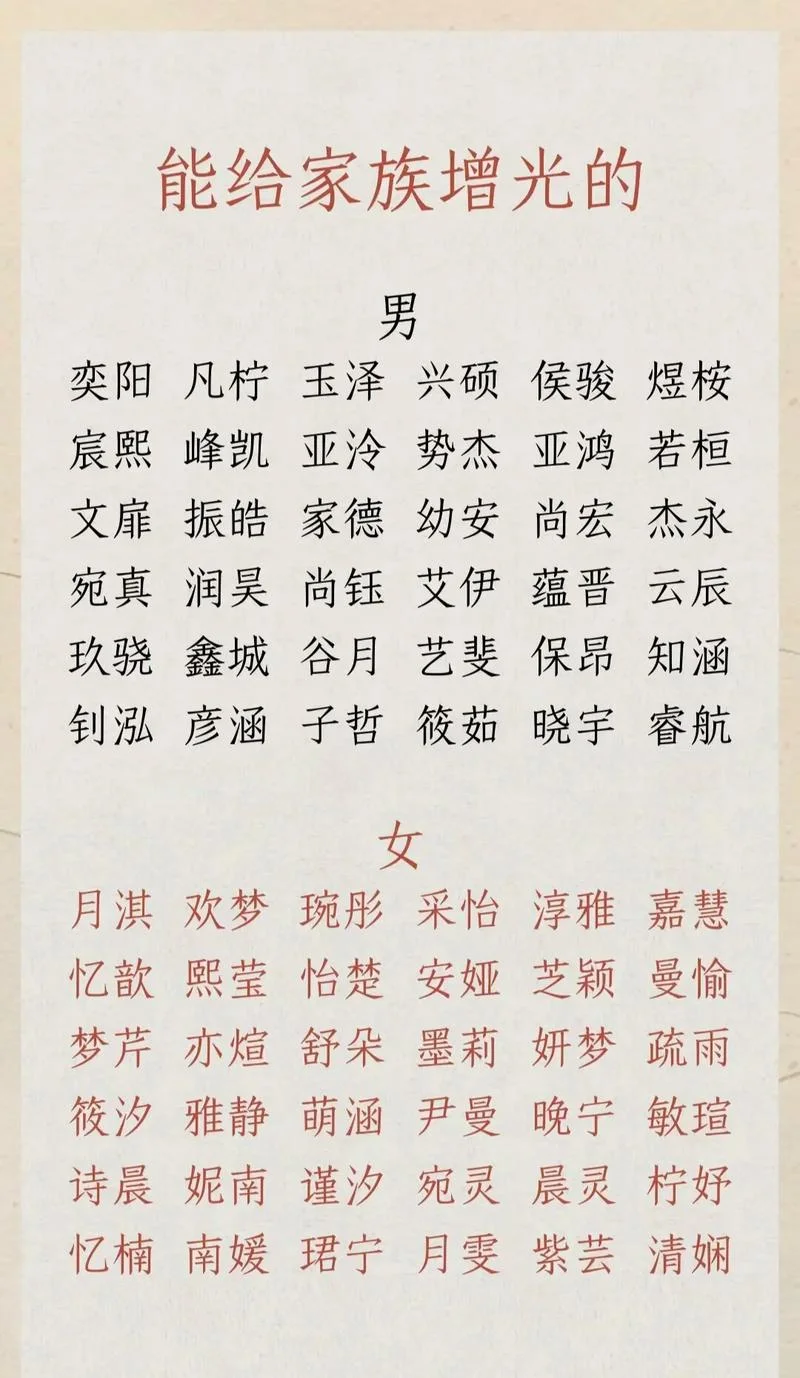 能给家族增光的
男
奕阳 凡柠 玉泽 兴硕 侯骏 煜桉
宸熙 峰凯 亚泠 势杰 亚鸿 若桓
文扉 振皓 家德 幼安 尚宏 杰永
宛真 润昊 尚钰 艾伊 蕴晋 云辰
玖骁 鑫城 谷月 艺斐 保昂 知涵
钊泓 彦涵 子哲 筱茹 晓宇 睿航
女
月淇 欢梦 琬彤 采怡 淳雅 嘉慧
忆歆 熙莹 怡楚 安娅 芝颖 曼愉
梦芹 亦煊 舒朵 墨莉 妍梦 疏雨
筱汐 雅静 萌涵 尹曼 晚宁 敏瑄
诗晨 妮南 谨汐 宛灵 晨灵 柠妤
忆楠 南媛 珺宁 月雯 紫芸 清娴